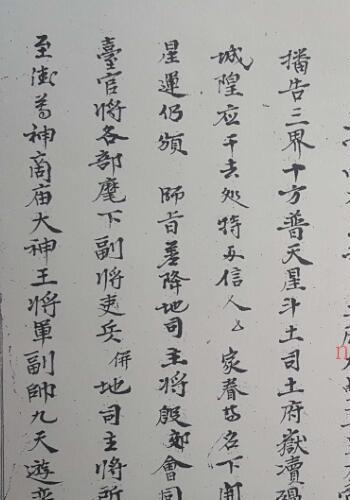 播告三界十方普天星斗土司土府嶽瀆
城隍应干去処特与信人厶家眷等名下開
星運仍頒 師旨差降地司主将殷郊會同
臺官将各部麾下副将吏兵 併地司主将所
至街著神商庙大神王将軍副帥九天遊